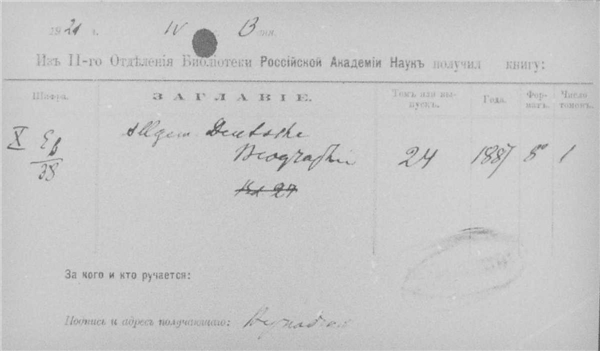 1921 г. IV 13 дня.
Изъ II-го Отдѣленія Библіотеки Россійской Академіи Наукъ получилъ книгу:
Шифръ. ЗАГЛАВІЕ. Томъ или выпускъ. Года. Форматъ. Число томовъ.
X Eb/38 Allgem Deutsche
Biographie 24 1887 8° 1
Bd 24
За кого и кто ручается:
Подпись и адресъ получающаго: